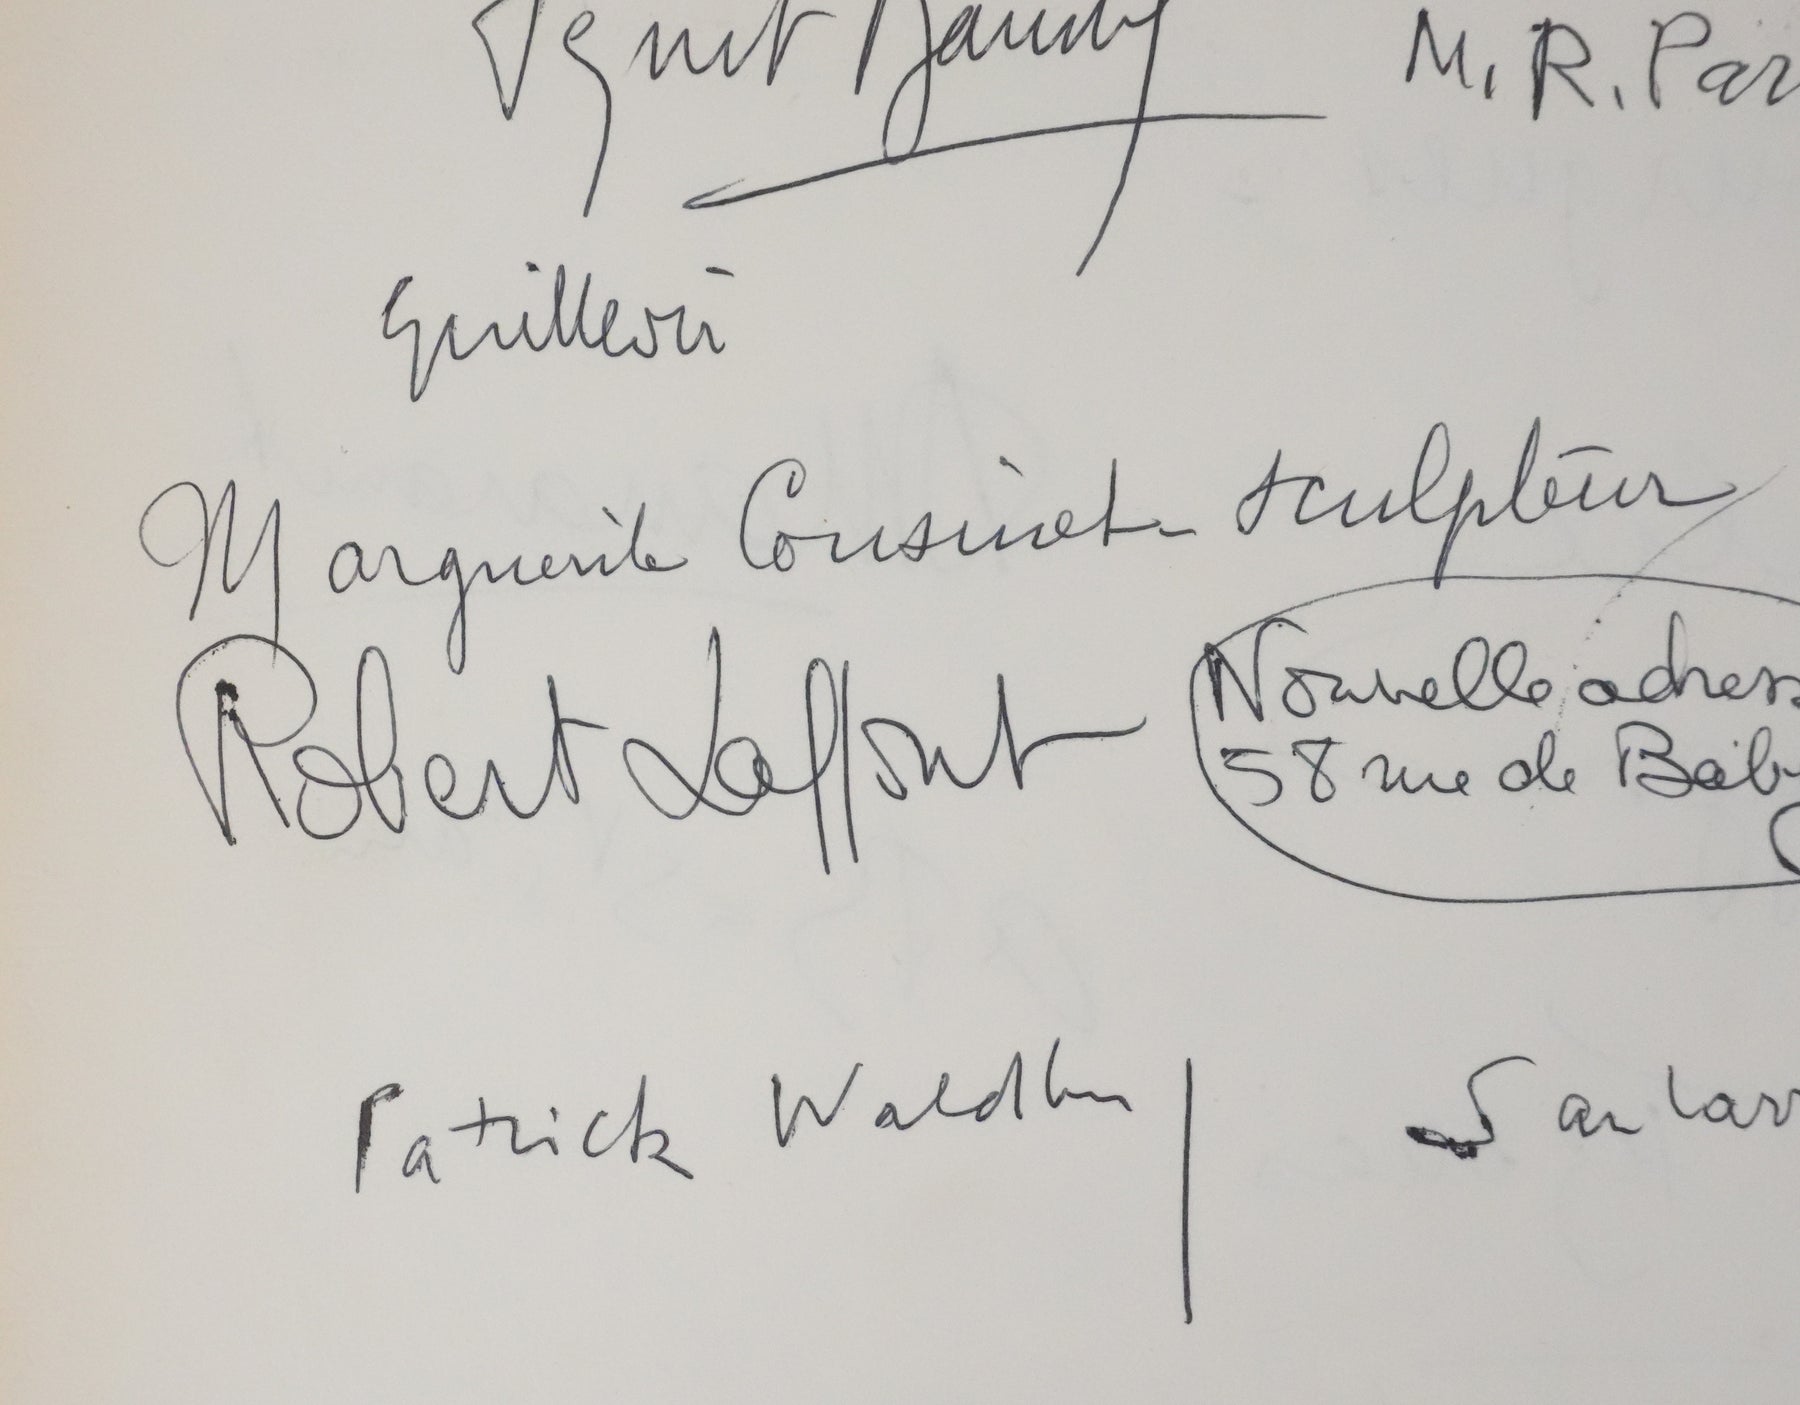 M. R. Par
Guillevic
Marguerite Cousinet sculpteur
Robert Laffont
Nouvelle adress
58 rue de Baby
Patrick Waldbe